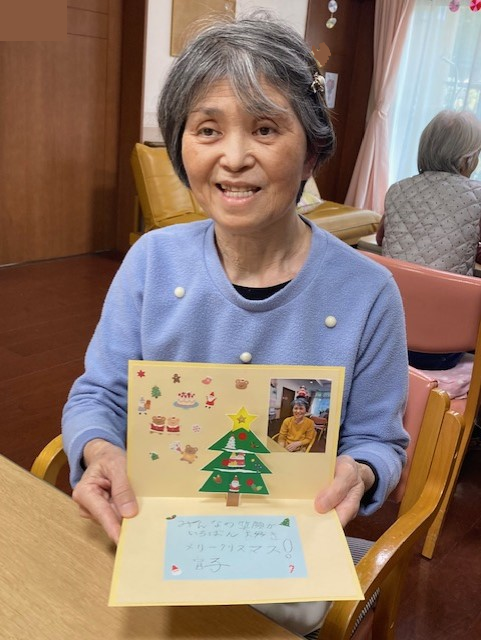 みんなの笑顔が
いちばん大好き
メリークリスマス!